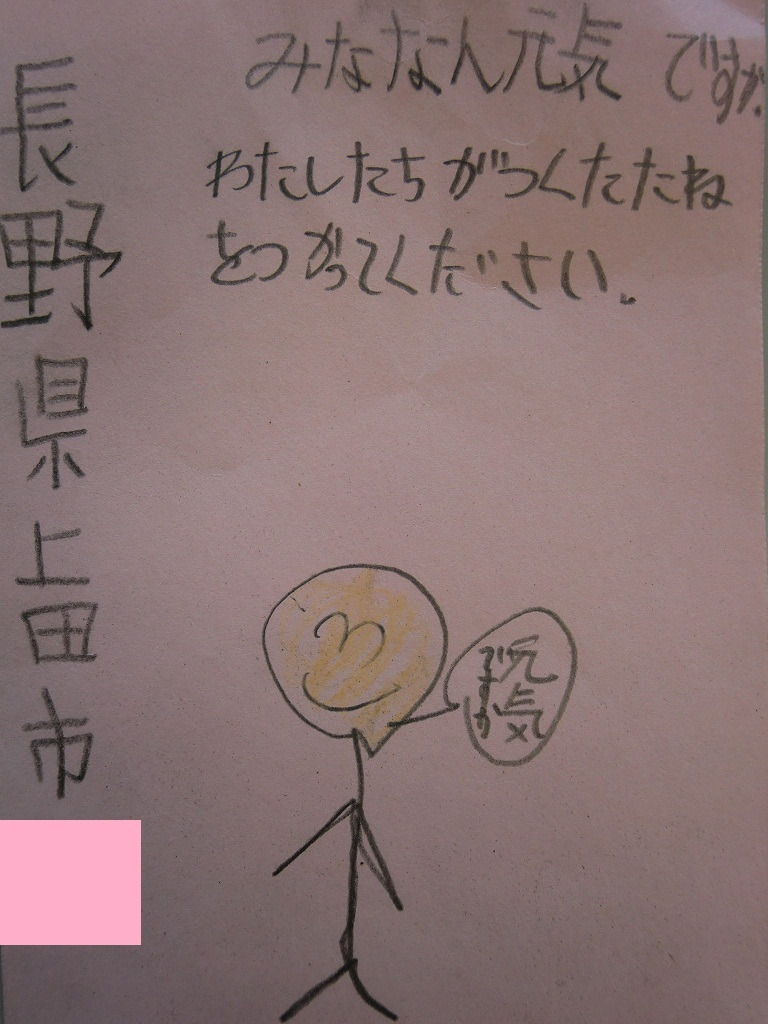 みななん元気ですか.
わたしたちがつくたたね
をつかってください.
長野県上田市
元気
ですか